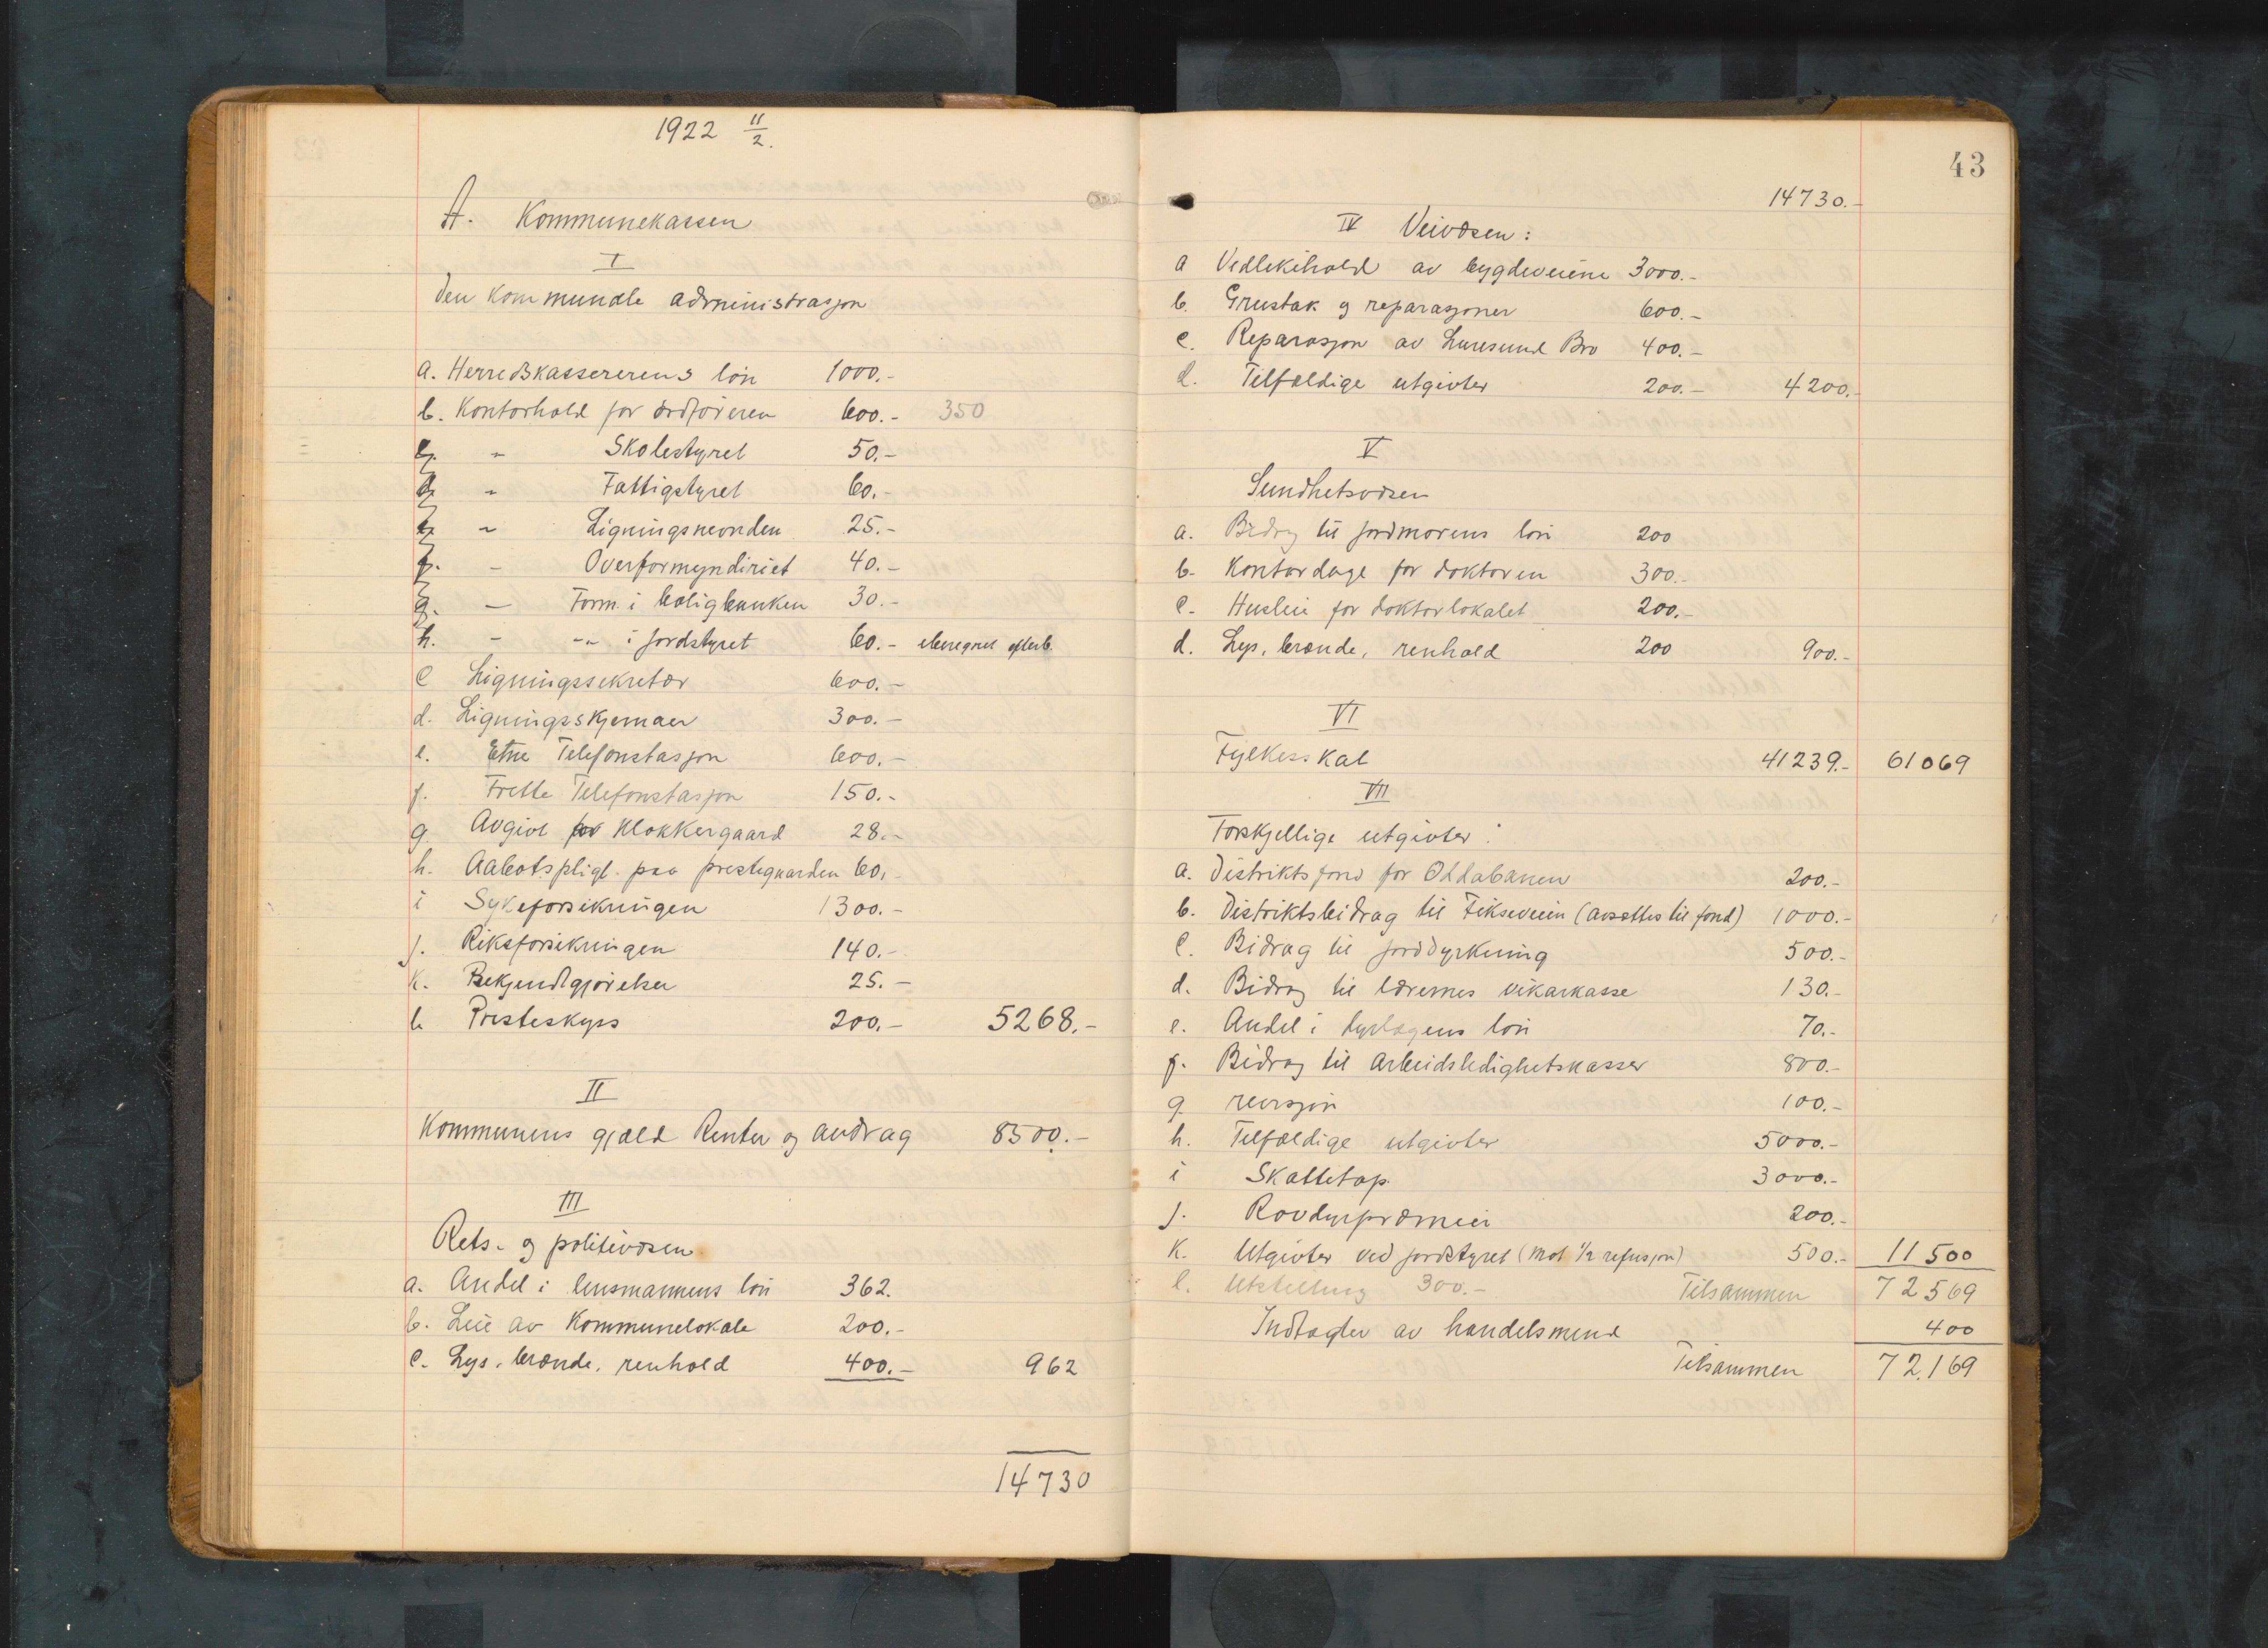 1922 11/2.
A. Kommunekassen
I
Den kommunale administrasjon
a. Herredskassererens løn 1000.-
b. Kontorhold for ordføreren 600.- 350
" Skolestyret 50.-
" Fattigstyret 60.-
" Ligningsnevnden 25.-
f. " Overformynderiet 40.-
g. " Form. i boligbanken 30.-
h. " -"- i jordstyret 60.-
c Ligningssekretær 600.-
d. Ligningsskjemaer 300.-
e. Etne Telefonstasjon 600.-
f. Frette Telefonstasjon 150.-
g Avgivt for Klokkergaard 28.-
h. Aabotspligt. paa prestegaarden 60.-
i Sykeforsikringen 1300.-
j. Riksforsikringen 140.-
k. Bekjendtgjørelser 25.-
l. Presteskyss 200.- 5268.-
II
Kommunens gjæld Renter og avdrag 8500.-
III
Rets- og politivæsen
a. Andel i lensmannens løn 362.
b. Leie av Kommunelokale 200.-
c. Lys, brænde, renhold 400.- 962
14730
43
14730.-
IV Veivæsen:
a Vedlikehold av bygdeveiene 3000.-
b. Grustak og reparasjoner 600.-
c. Reparasjon av Luresund Bro 400.-
d. Tilfældige utgivter 200.- 4200.-
V
Sundhetsvæsen
a. Bidrag til jordmorens løn 200
b. Kontordage for doktoren 300.-
c. Husleie for doktorlokalet 200.-
d. Lys, brænde, renhold 200 900.-
VI
Fylkesskat 41239.- 61069
VII
Forskjellige utgivter:
a. Distriktsfond for Oddabanen 200.-
b. Distriktsbidrag til Fikseveien (avsættes til fond) 1000.-
c. Bidrag til jorddyrkning 500.-
d. Bidrag til lærernes vikarkasse 130.-
e. Andel i dyrlægens løn 70.-
f. Bidrag til Arbeidsledighetskasser 800.-
g revisjon 100.-
h. Tilfældige utgivter 5000.-
i Skattetap 3000.-
j. Rovdyrpræmier 200.-
k. Utgivter ved jordstyret (mot 1/2 refusjon) 500.- 11500
l. Utstilling 300.- Tilsammen 72569
Indtægter av handelsmænd 400
Tilsammen 72.169